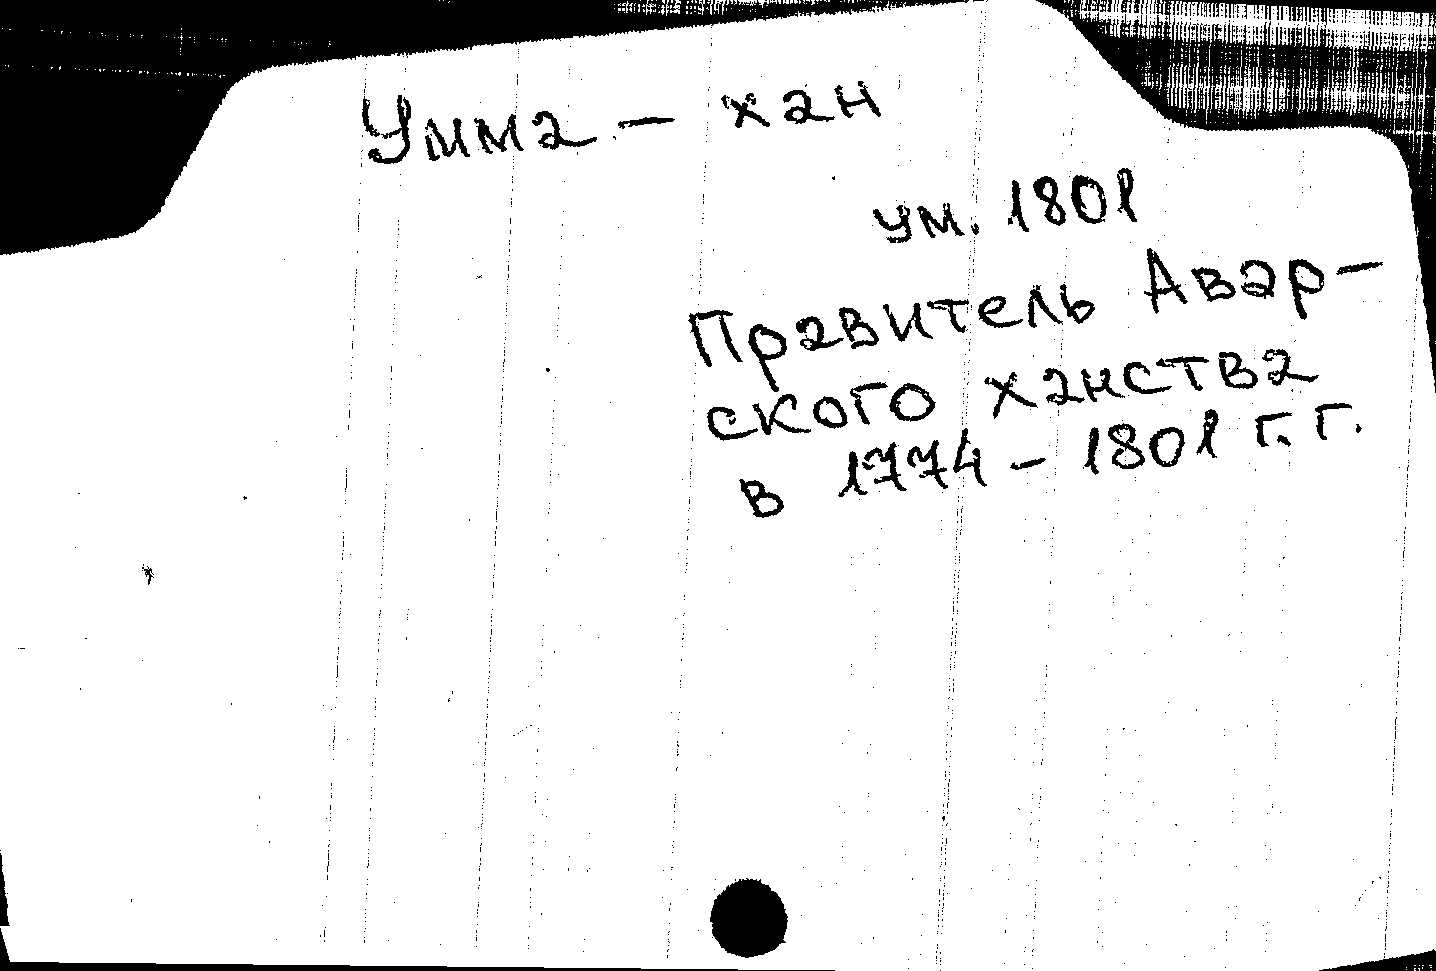 Умма - хан
ум. 1801
Правитель Авар-
ского ханства
в 1774 - 1801 г.г.